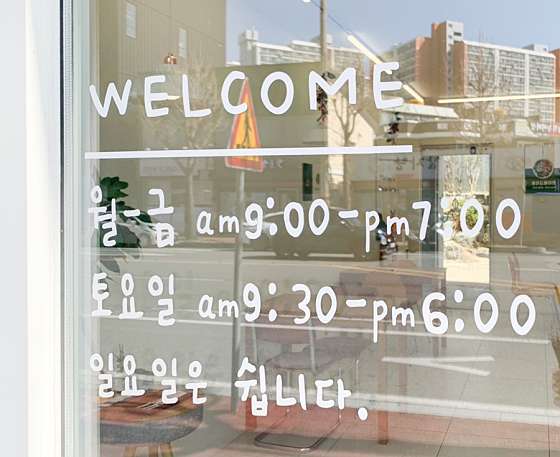 WELCOME
월-금 am9:00-pm7:00
토요일 am9:30-pm6:00
일요일은 쉽니다.